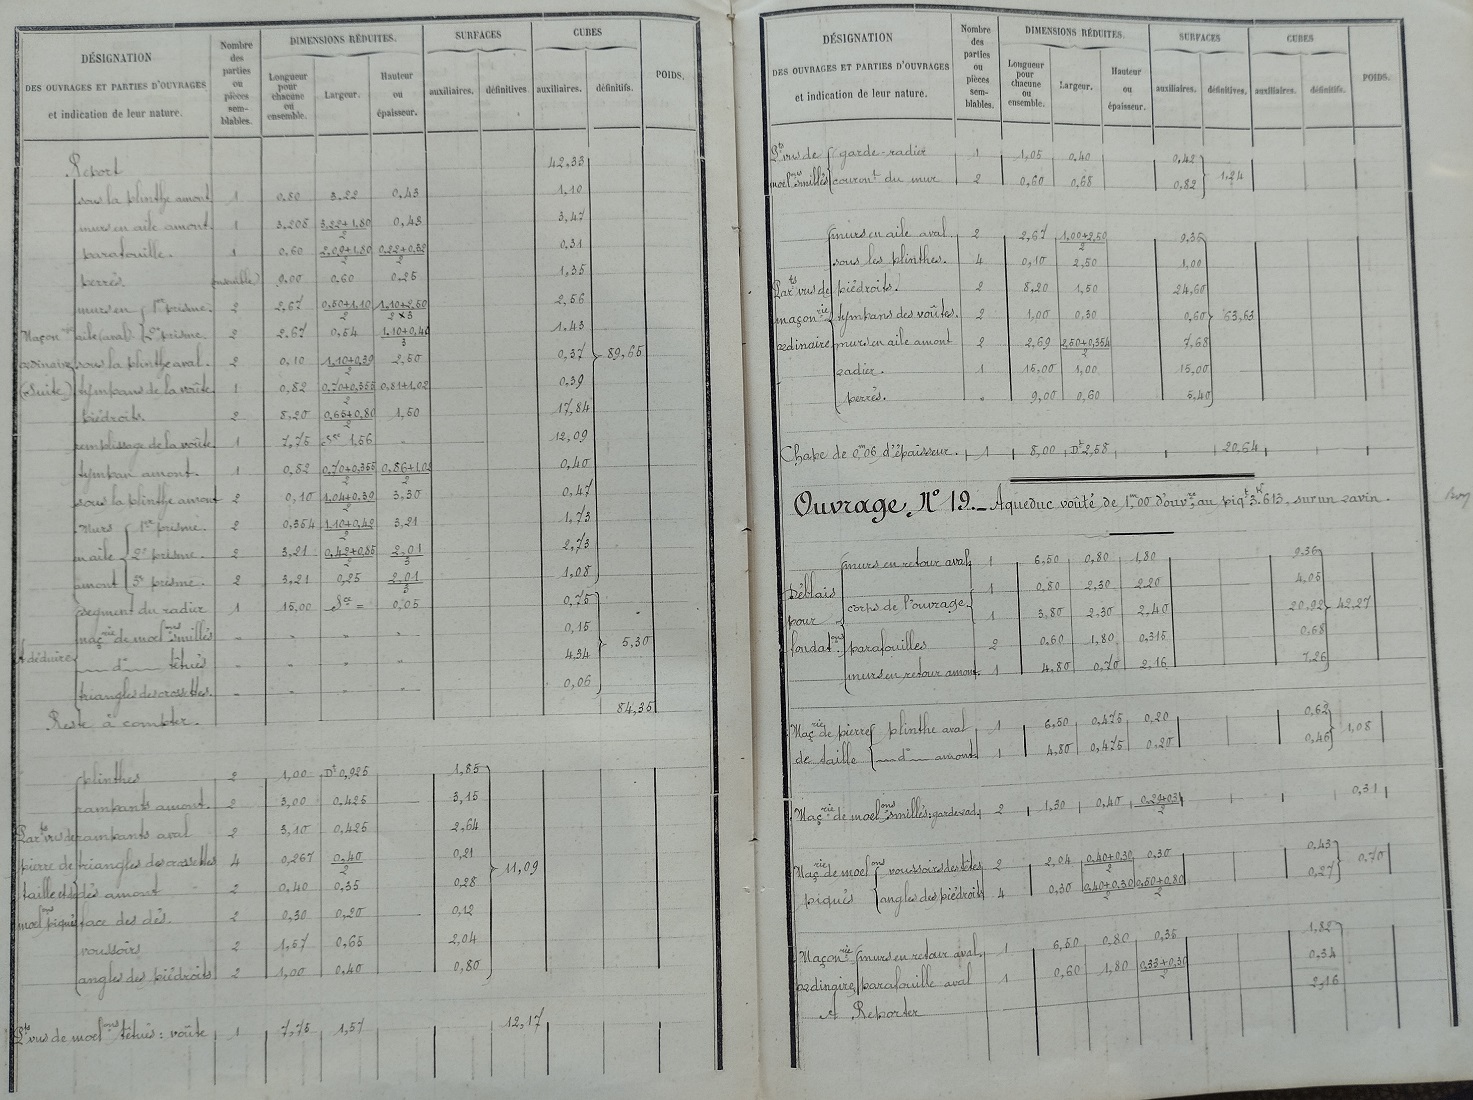 DÉSIGNATION
DES OUVRAGES ET PARTIES D'OUVRAGES
et indication de leur nature.
Nombre des parties ou pièces sem-blables.
DIMENSIONS RÉDUITES.
Longueur pour chacune ou ensemble.
Largeur.
Hauteur ou épaisseur.
SURFACES
auxiliaires.
définitives.
CUBES
auxiliaires.
définitifs.
POIDS.
Report 42,33
Maçon.rie ordinaire (Suite)
sous la plinthe amont 1 0,80 3,22 0,43 1,10
murs en aile amont. 1 3,208 3,22+1,80/2 0,43 3,47
parafouille. 1 0,60 2,09+1,80/2 0,22+0,32/2 0,31
perrés. ensemble 9,00 0,60 0,25 1,35
murs en aile (aval) 1er prisme. 2 2,67 0,50+1,10/2 1,10+2,50/2×3 2,56
2e prisme. 2 2,67 0,54 1,10+0,40/3 1,43
sous la plinthe aval. 2 0,10 1,10+0,39/2 2,50 0,37 89,65
tympans de la voûte 1 0,82 0,70+0,355/2 0,81+1,02 0,39
piédroits. 2 8,20 0,65+0,80/2 1,50 17,84
remplissage de la voûte. 1 7,75 Sce 1,56 " 12,09
tympan amont. 1 0,82 0,70+0,355/2 0,86+1,02/2 0,40
sous la plinthe amont 2 0,10 1,04+0,30/2 3,30 0,47
Murs en aile amont 1er prisme. 2 0,354 1,10+0,42/2 3,21 1,73
2e prisme. 2 3,21 0,42+0,85/2 2,01/3 2,73
3e prisme. 2 3,21 0,25 2,01/3 1,08
A déduire
segment du radier 1 15,00 Sce = 0,05 0,75
maç.rie de moel.ons smillés " " " " 0,15
d° têtués " " " " 4,34 5,30
triangles des crossettes. " " " " 0,06
Reste à compter. 84,35
Par.ts vus de pierre de taille et de moel.ons piqués
plinthes 2 1,00 Dt 0,925 1,85
rampants amont. 2 3,00 0,425 3,15
rampants aval 2 3,10 0,425 2,64
triangles des crossettes 4 0,267 0,40/2 0,21
dés amont 2 0,40 0,35 0,28 11,09
face des dés. 2 0,30 0,20 0,12
voussoirs 2 1,57 0,65 2,04
angles des piédroits 2 1,00 0,40 0,80
P.ts vus de moel.ons têtués : voûte 1 7,75 1,57 12,17
DÉSIGNATION
DES OUVRAGES ET PARTIES D'OUVRAGES
et indication de leur nature.
Nombre des parties ou pièces sem-blables.
DIMENSIONS RÉDUITES.
Longueur pour chacune ou ensemble.
Largeur.
Hauteur ou épaisseur.
SURFACES
auxiliaires.
définitives.
CUBES
auxiliaires.
définitifs.
POIDS.
P.ts vus de moel.ons smillés
garde-radier 1 1,05 0,40 0,42
couron.t du mur 2 0,60 0,68 0,82 1,24
Par.ts vus de maçon.rie ordinaire
murs en aile aval 2 2,67 1,00+2,50/2 9,35
sous les plinthes. 4 0,10 2,50 1,00
piédroits. 2 8,20 1,50 24,60
tympans des voûtes. 2 1,00 0,30 0,60 63,63
murs en aile amont 2 2,69 2,50+0,354/2 7,68
radier. 1 15,00 1,00 15,00
perrés. " 9,00 0,60 5,40
Chape de 0m06 d'épaisseur. 1 8,00 Dt 2,58 20,64
Ouvrage N° 19._ Aqueduc voûté de 1m,00 d'ouv.re au piq.t 3.K 613, sur un ravin.
Déblais pour fondat.ons
murs en retour aval 1 6,50 0,80 1,80 9,36
corps de l'ouvrage. 1 0,80 2,30 2,20 4,05
1 3,80 2,30 2,40 20,92 42,27
parafouilles 2 0,60 1,80 0,315 0,68
murs en retour amont 1 4,80 0,70 2,16 7,26
Maç.rie de pierre de taille
plinthe aval 1 6,50 0,475 0,20 0,62
d° amont 1 4,80 0,475 0,20 0,46 1,08
Maç.rie de moel.ons smillés: garderad. 2 1,30 0,40 0,31
Maç.rie de moel.ons piqués
voussoirs des têtes 2 2,04 0,40+0,30/2 0,30 0,43
angles des piédroits 4 0,30 0,40+0,30/2 0,50+0,80/2 0,27 0,70
Maçon.rie ordinaire
murs en retour aval. 1 6,50 0,80 0,35 1,82
parafouille aval 1 0,60 1,80 0,33+0,30/2 0,34
A Reporter 2,16